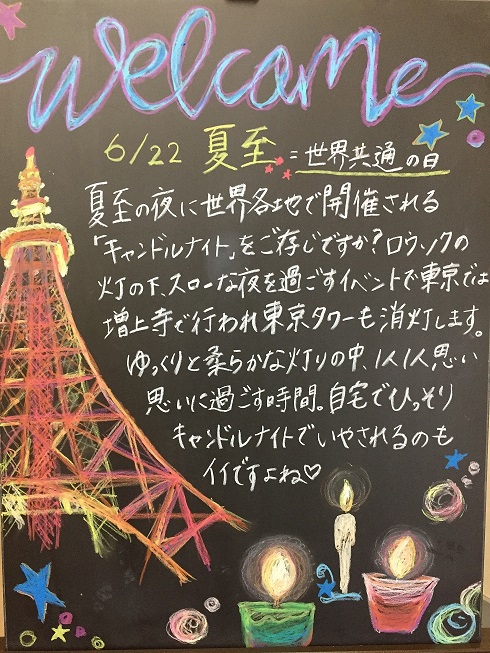 Welcome
6/22 夏至=世界共通の日
夏至の夜に世界各地で開催される
「キャンドルナイト」をご存じですか?ロウソクの
灯の下、スローな夜を過ごすイベントで東京では
増上寺で行われ東京タワーも消灯します。
ゆっくりと柔らかな灯りの中、1人1人思い
思いに過ごす時間。自宅でひっそり
キャンドルナイトでいやされるのも
イイですよね♡